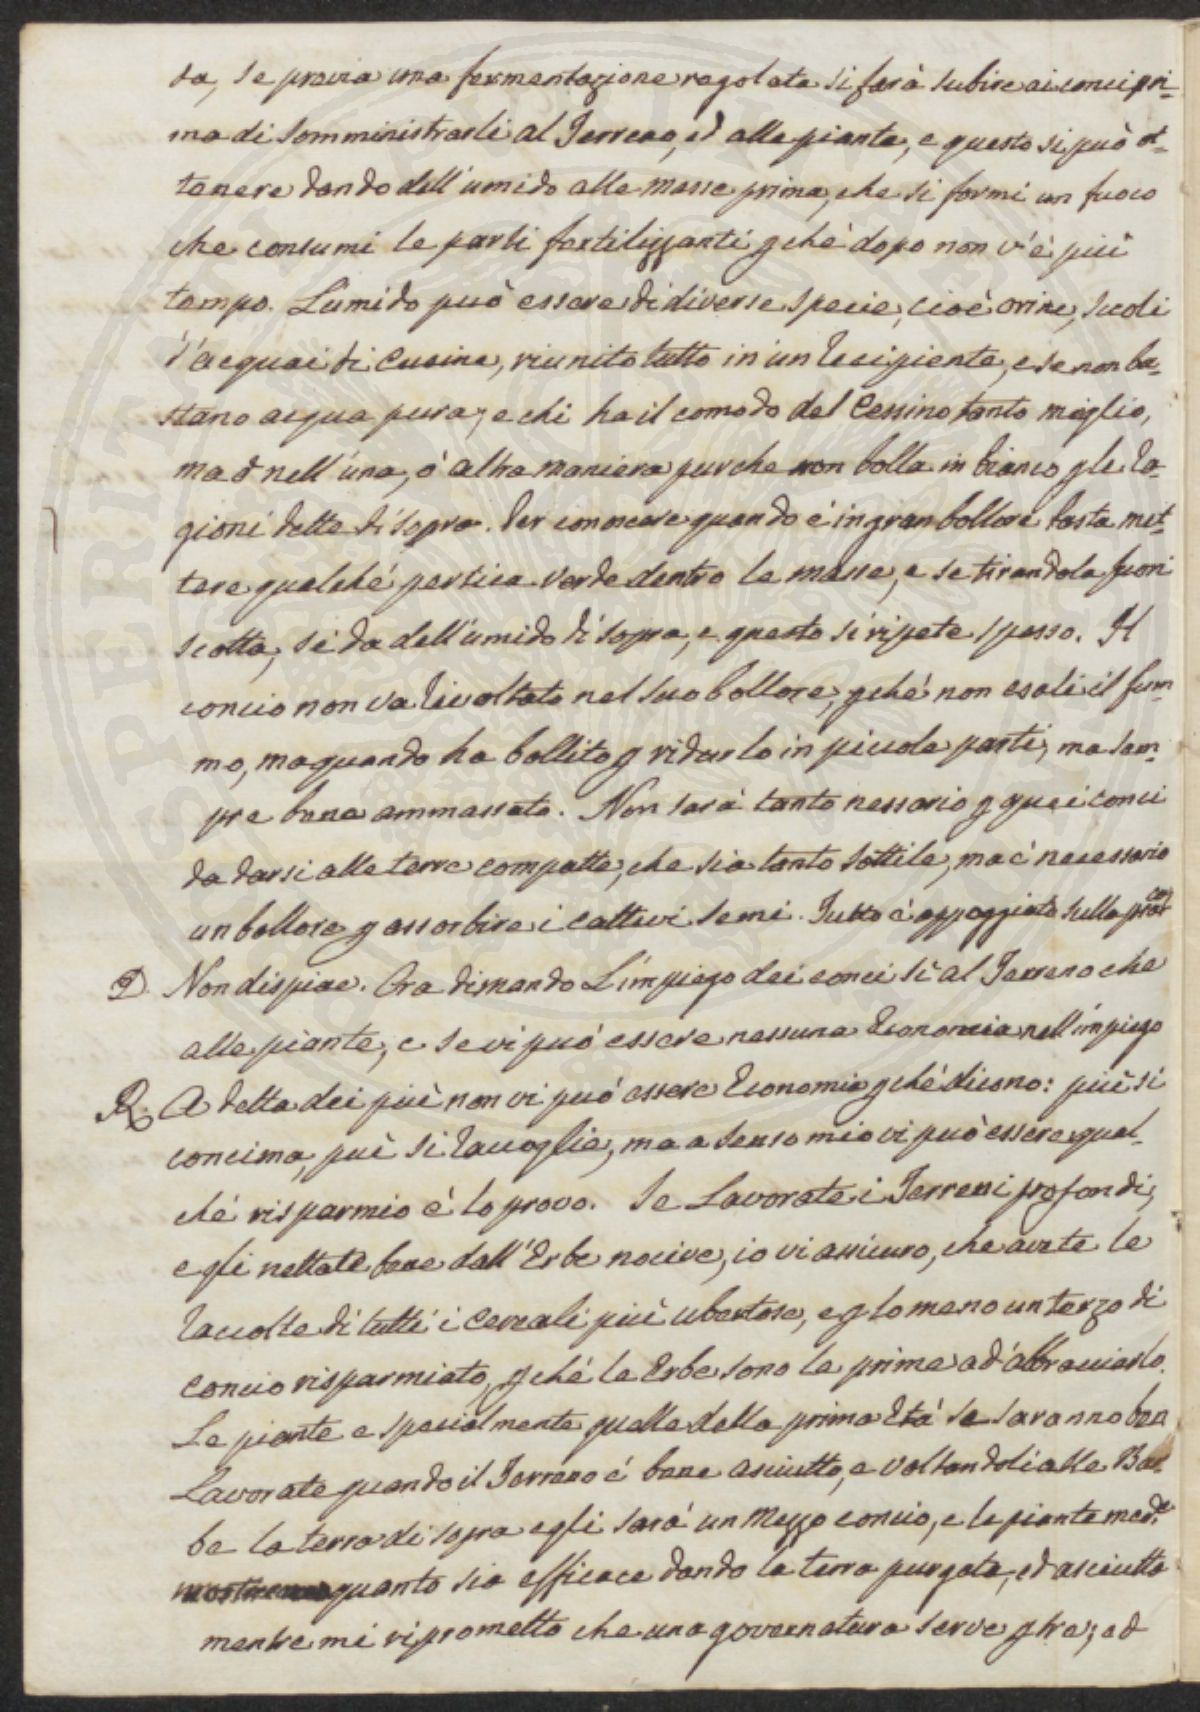 da, se previa una fermentazione regolata si farà subire ai conci pri-
ma di somministrarli al Terreno, ed alle piante, e questo si può ot-
tenere dando dell'umido alle masse prima, che si formi un fuoco
che consumi le parti fertilizzanti pché dopo non v'è più
tempo. L'umido può essere di diverse specie, cioè orine, scoli
d'acquai di Cucina, riunito tutto in un Recipiente, e se non ba-
stano acqua pura, e chi ha il comodo del Cessino tanto meglio,
ma ò nell'una, ò altra maniera purche non bolla in bianco p le ra-
gioni dette di sopra. Per conoscere quando è in gran bollore basta met-
tere qualché pertica verde dentro le masse, e se tirandola fuori
scotta, si da dell'umido di sopra, e questo si ripete spesso. Il
concio non va rivoltato nel suo bollore, pché non esali il fum-
mo, ma quando ha bollito p ridurlo in piccole parti, ma sem-
pre bene ammassato. Non sarà tanto nessario p quei conci
da darsi alle terre compatte, che sia tanto sottile, ma è necessario
un bollore p assorbire i cattivi semi. Tutto è appoggiato sulla
D. Non dispiace. Ora dimando L'impiego dei conci sì al Terreno che
alle piante, e se vi può essere nessuna Economia nell'impiego
R. A detta dei più non vi può essere Economia pché dicono: più si
concima, più si raccoglie, ma a senso mio vi può essere qual-
ché risparmio è lo provo. Se Lavorate i Terreni profondi,
e gli nettate bene dall'Erbe nocive, io vi assicuro, che avete le
raccolte di tutti i Cereali più ubertose, e p lo meno un terzo di
concio risparmiato, pché le Erbe sono le prime ad abbracciarlo.
Le piante e specialmente quelle della prima Età se saranno ben
Lavorate quando il Terreno è bene asciutto, e voltandoli alle Bar-
be la terra di sopra egli sarà un Mezzo concio, e le piante med.e
quanto sia efficace dando la terra purgata, ed asciutta
mentre mi riprometto che una governatura serve p tre, ed